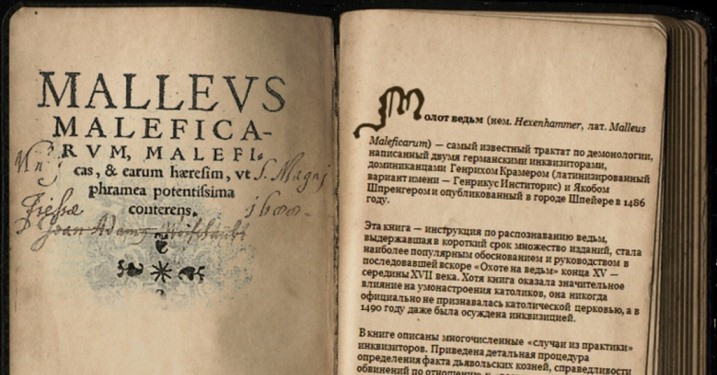 MALLEVS
MALEFICA-
RVM, MALEFI-
cas, & earum hæresim, vt
phramea potentissima
conterens.
1600.
Молот ведьм (нем. Hexenhammer, лат. Malleus
Maleficarum) — самый известный трактат по демонологии,
написанный двумя германскими инквизиторами,
доминиканцами Генрихом Крамером (латинизированный
вариант имени — Генрикус Инститорис) и Якобом
Шпренгером и опубликованный в городе Шпейере в 1486
году.
Эта книга — инструкция по распознаванию ведьм,
выдержавшая в короткий срок множество изданий, стала
наиболее популярным обоснованием и руководством в
последовавшей вскоре «Охоте на ведьм» конца XV —
середины XVII века. Хотя книга оказала значительное
влияние на умонастроения католиков, она никогда
официально не признавалась католической церковью, а в
1490 году даже была осуждена инквизицией.
В книге описаны многочисленные «случаи из практики»
инквизиторов. Приведена детальная процедура
определения факта дьявольских козней, справедливости
обвинений по отношению к